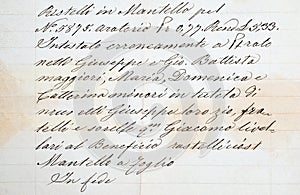 Rustello in Mantello pel
N.º 1875. aratorio Pr 0,77. Rend. L. 3.33.
Intestato erroneamente a
nelli Giuseppe e Gio. Battista
maggiori, Maria, Domenica e
Catterina minori in tutela di
Giuseppe loro zio, fra-
tello e sorelle qm Giacomo livel-
lari al Beneficio
Mantello a foglio
In fede